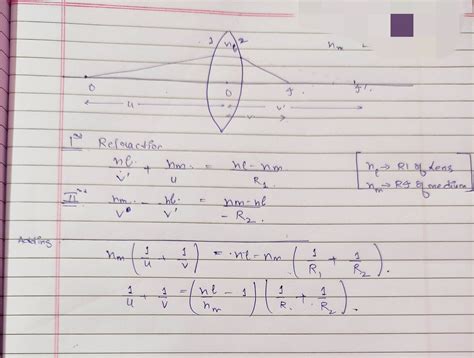 1 nl 2 nm
O O I I'
u v'
v
Ist Refraction
nl/v' + nm/u = nl - nm/R1
[nl → RI of Lens
nm → RI of medium]
IInd nm/v - nl/v' = nm - nl/-R2.
Adding
nm (1/u + 1/v) = nl - nm (1/R1 + 1/R2).
1/u + 1/v = (nl/nm - 1) (1/R1 + 1/R2).